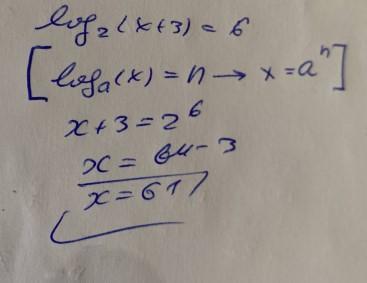 log₂(x+3) = 6
[logₐ(x) = n → x = aⁿ]
x+3 = 2⁶
x = 64 - 3
x = 61